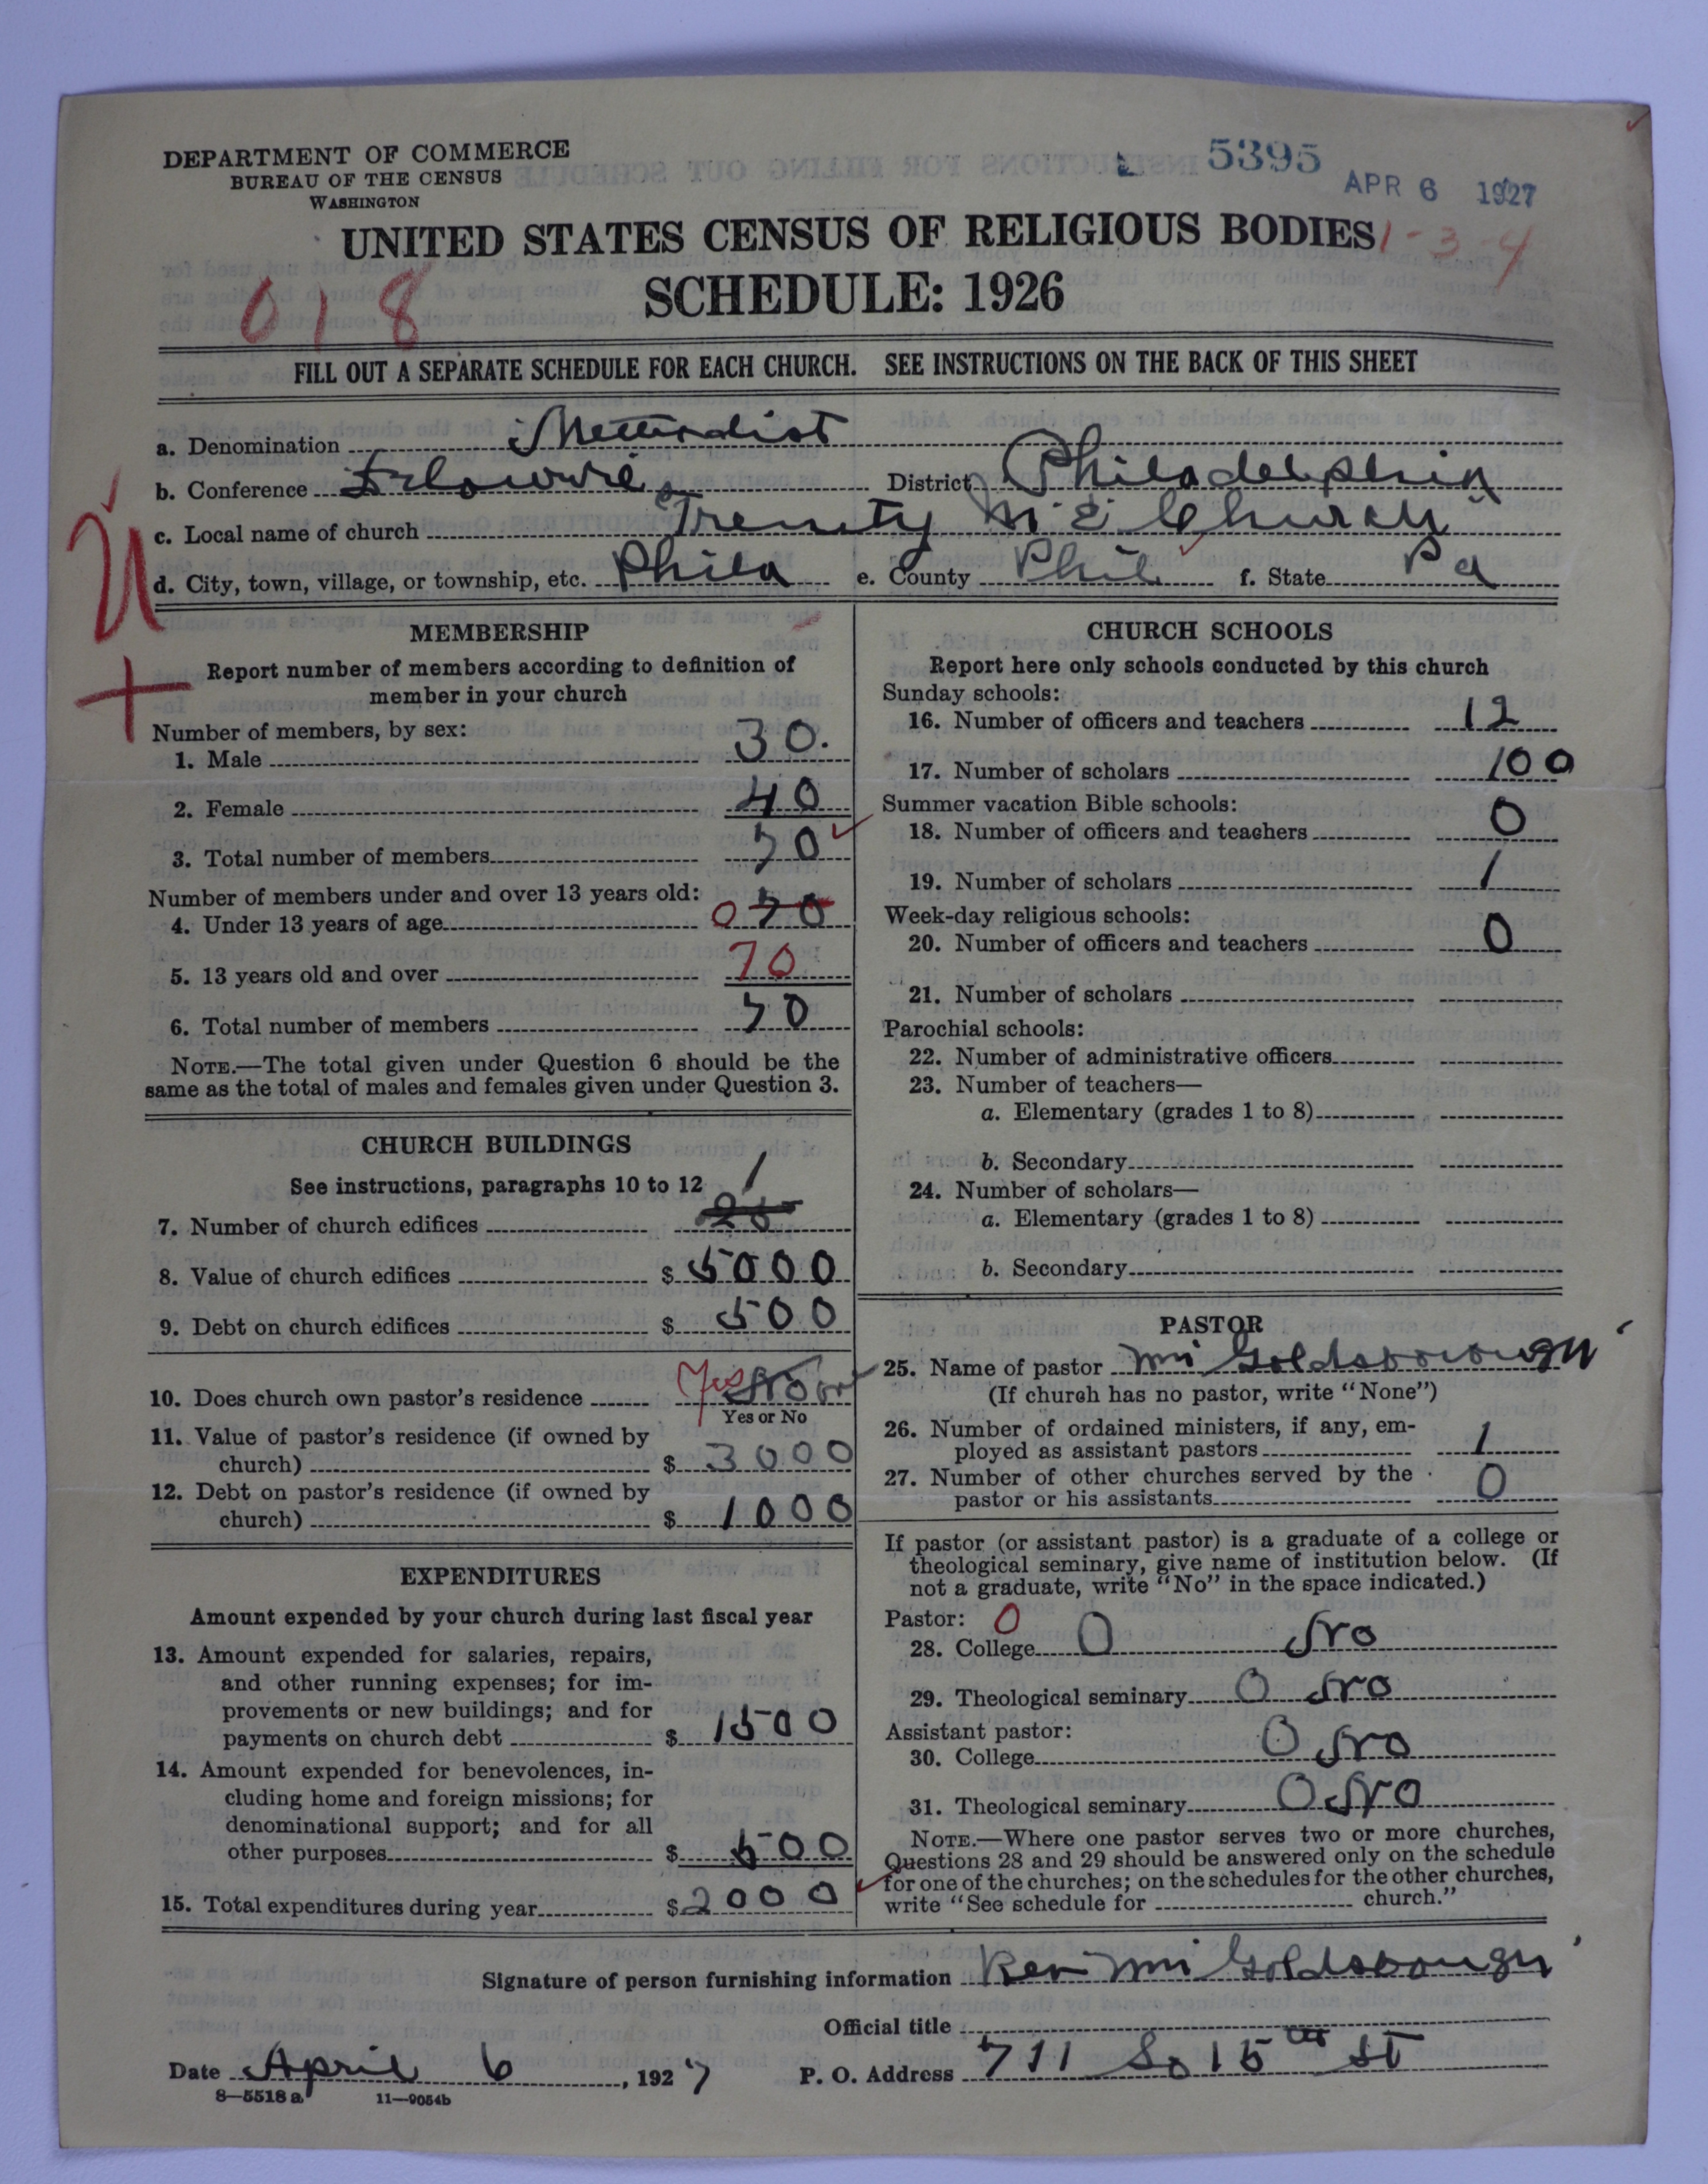 DEPARTMENT OF COMMERCE
BUREAU OF THE CENSUS
WASHINGTON
5395
APR 6 1927
UNITED STATES CENSUS OF RELIGIOUS BODIES
1-3-4
SCHEDULE: 1926
018
FILL OUT A SEPARATE SCHEDULE FOR EACH CHURCH. SEE INSTRUCTIONS ON THE BACK OF THIS SHEET
a. Denomination Methodist
b. Conference District Philadelphia
c. Local name of church Trenity M E Church
d. City, town, village, or township, etc. Phila e. County Phil f. State Pa
U
+
MEMBERSHIP
Report number of members according to definition of
member in your church
Number of members, by sex:
1. Male 30.
2. Female 40
3. Total number of members 70
Number of members under and over 13 years old:
4. Under 13 years of age 0 70
5. 13 years old and over 70
6. Total number of members 70
NOTE.—The total given under Question 6 should be the
same as the total of males and females given under Question 3.
CHURCH BUILDINGS
See instructions, paragraphs 10 to 12
1
7. Number of church edifices
8. Value of church edifices $ 5000
9. Debt on church edifices $ 500
10. Does church own pastor's residence Yes
Yes or No
11. Value of pastor's residence (if owned by
church) $ 3000
12. Debt on pastor's residence (if owned by
church) $ 1000
EXPENDITURES
Amount expended by your church during last fiscal year
13. Amount expended for salaries, repairs,
and other running expenses; for im-
provements or new buildings; and for
payments on church debt $ 1500
14. Amount expended for benevolences, in-
cluding home and foreign missions; for
denominational support; and for all
other purposes $ 500
15. Total expenditures during year $ 2000
CHURCH SCHOOLS
Report here only schools conducted by this church
Sunday schools:
16. Number of officers and teachers 12
17. Number of scholars 100
Summer vacation Bible schools:
18. Number of officers and teachers 0
19. Number of scholars 1
Week-day religious schools:
20. Number of officers and teachers 0
21. Number of scholars
Parochial schools:
22. Number of administrative officers
23. Number of teachers—
a. Elementary (grades 1 to 8)
b. Secondary
24. Number of scholars—
a. Elementary (grades 1 to 8)
b. Secondary
PASTOR
25. Name of pastor Wm Goldsborough
(If church has no pastor, write "None")
26. Number of ordained ministers, if any, em-
ployed as assistant pastors 1
27. Number of other churches served by the
pastor or his assistants 0
If pastor (or assistant pastor) is a graduate of a college or
theological seminary, give name of institution below. (If
not a graduate, write "No" in the space indicated.)
Pastor: 0
28. College 0 No
29. Theological seminary 0 No
Assistant pastor:
30. College 0 No
31. Theological seminary 0 No
NOTE.—Where one pastor serves two or more churches,
Questions 28 and 29 should be answered only on the schedule
for one of the churches; on the schedules for the other churches,
write "See schedule for church."
Signature of person furnishing information Rev Wm Goldsbough
Official title
Date April 6, 1927 P. O. Address 711 So 15th St
8—5518 a 11—9054b